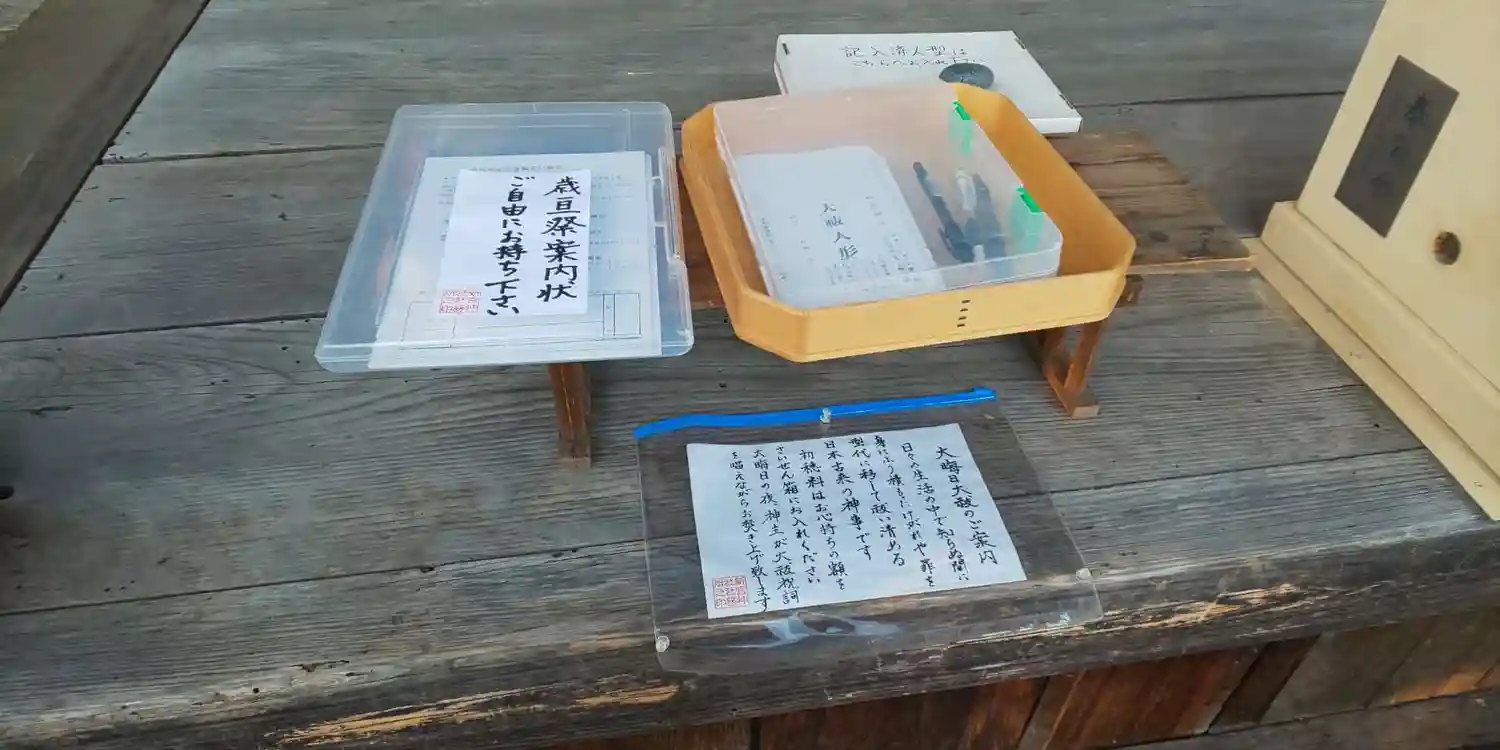 記入済人型は
こちらへお入れ下さい
歳旦祭案内状
ご自由にお持ち下さい
大祓人形
大晦日大祓のご案内
日々の生活の中で知らぬ間に
身にふり積もったけがれや罪を
型代に移して祓い清める
日本古来の神事です
初穂料はお心持ちの額を
さいせん箱にお入れください
大晦日の夜、神主が大祓祝詞
を唱えながらお焚き上げ致します